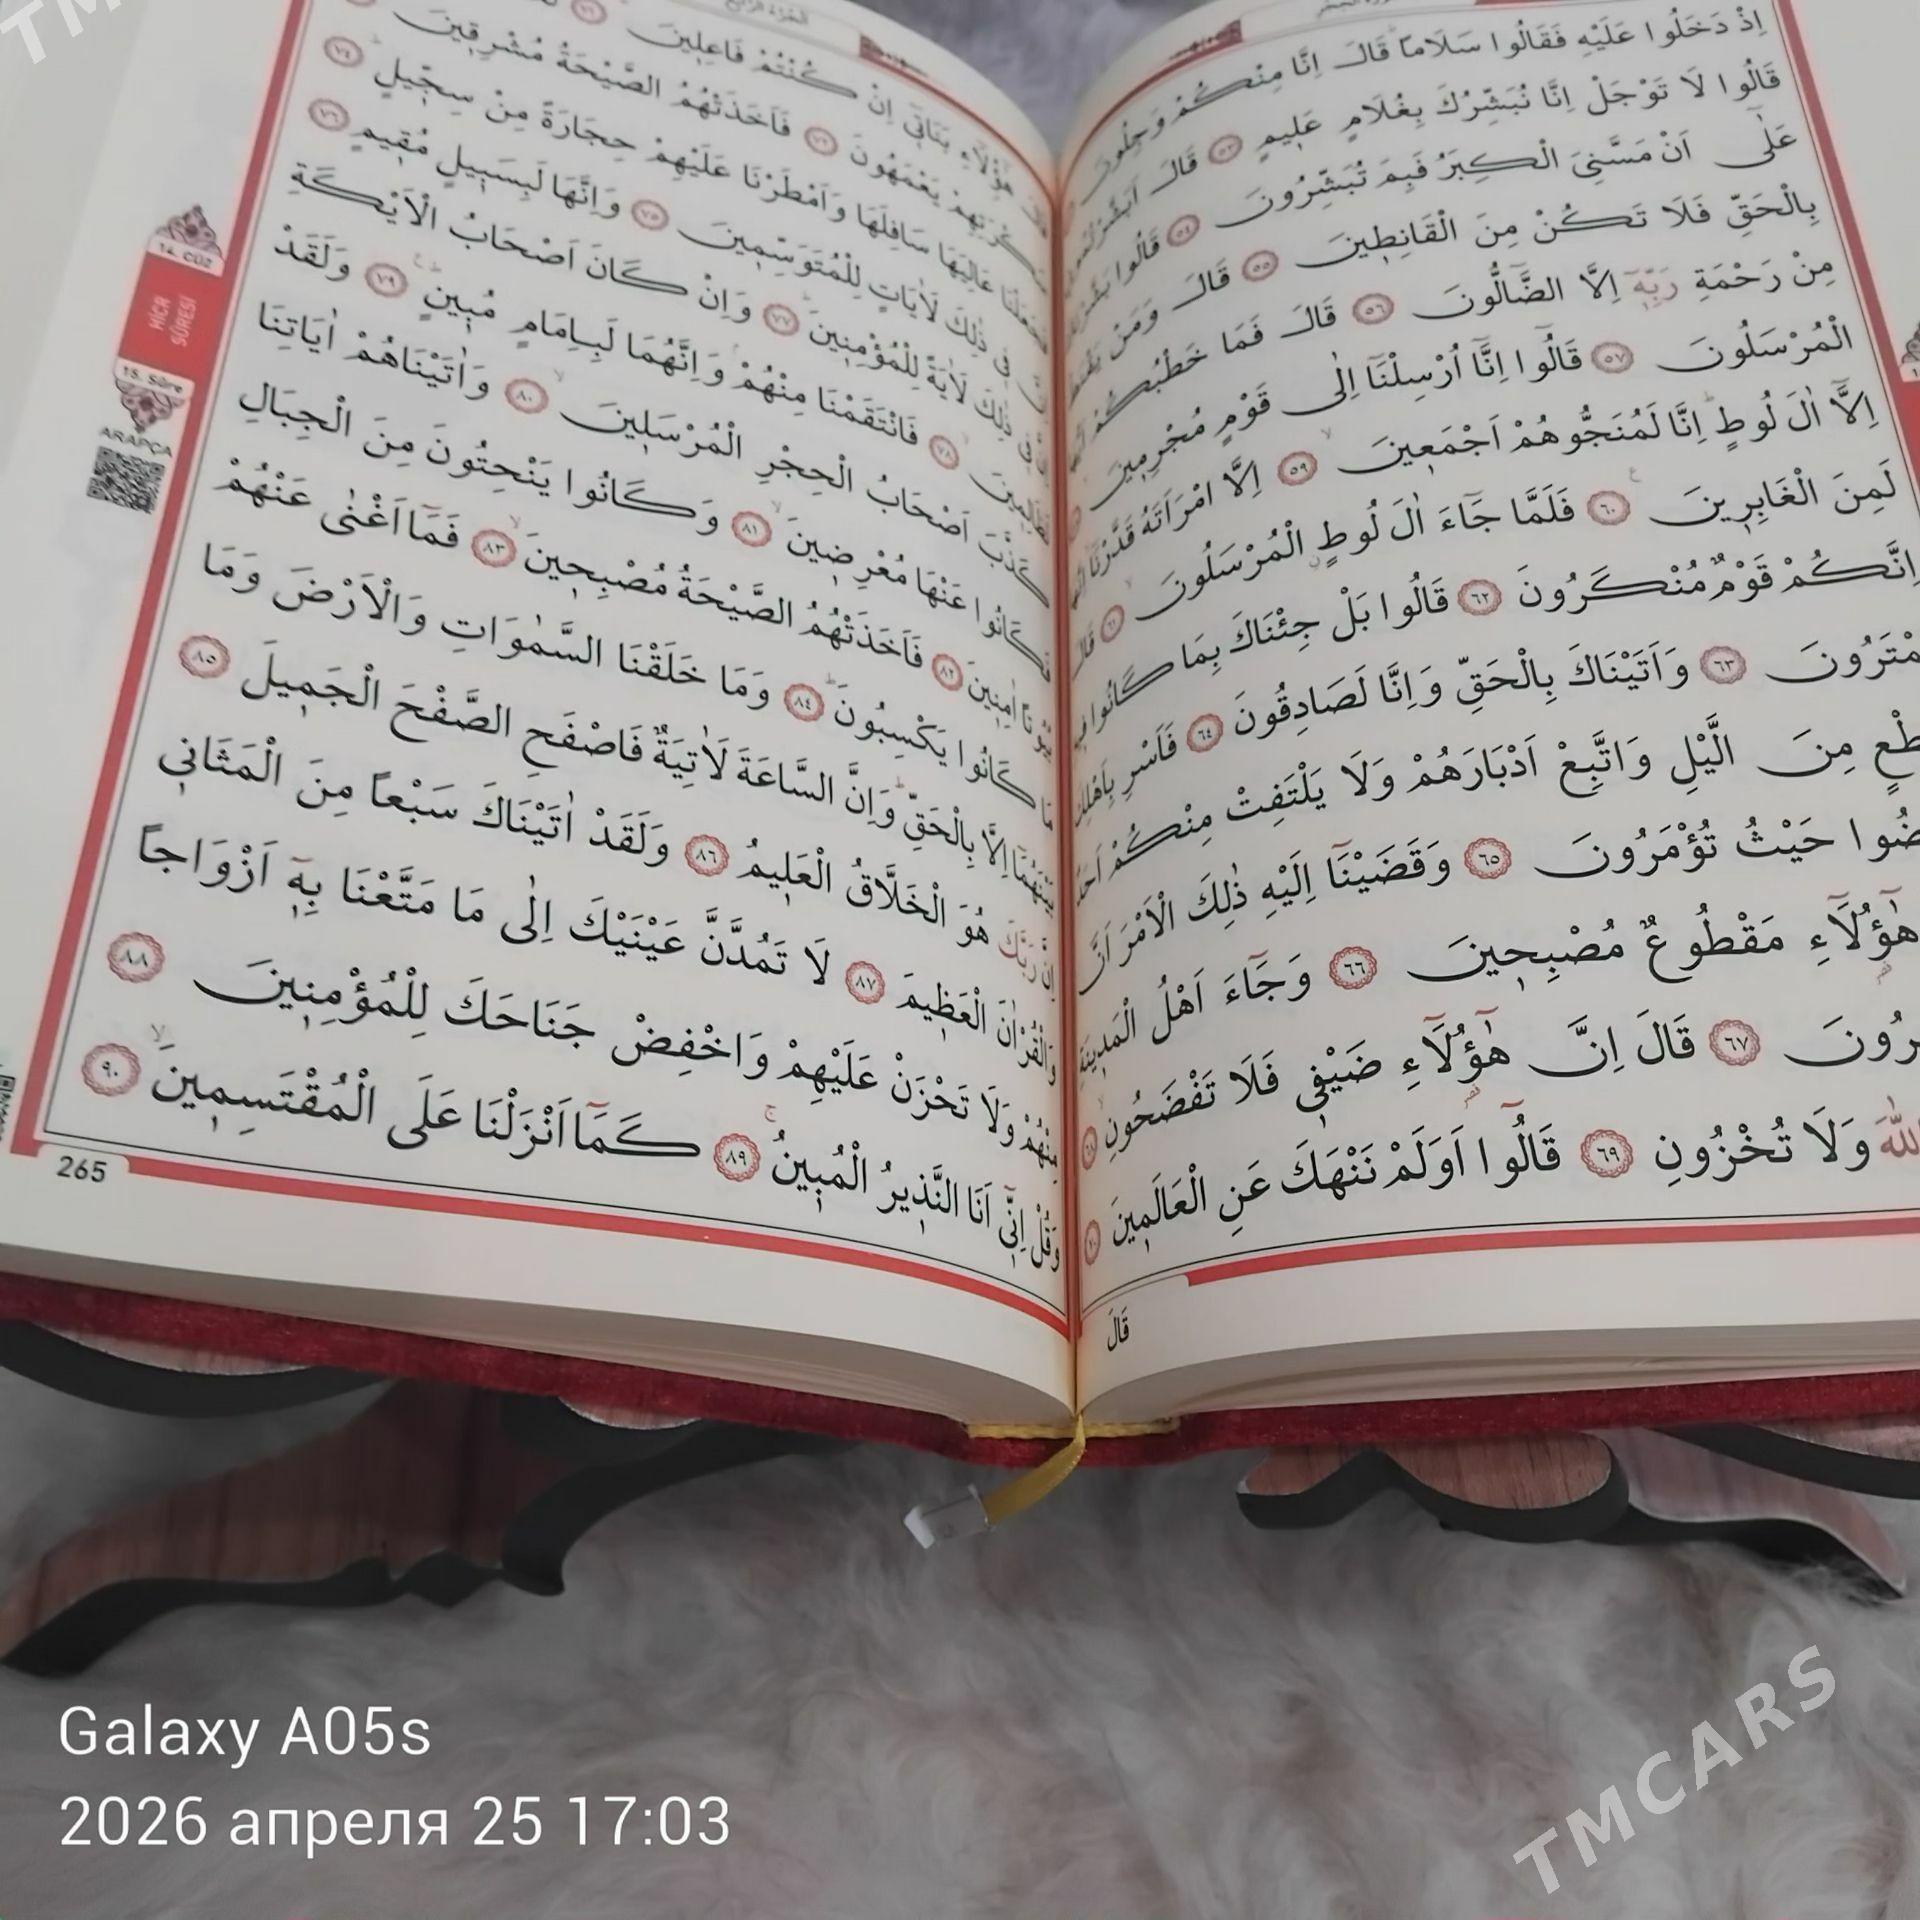 اِذْ دَخَلُوا عَلَيْهِ فَقَالُوا سَلَاماًۜ قَالَ اِنَّا مِنْكُمْ وَجِلُونَ
قَالُوا لَا تَوْجَلْ اِنَّا نُبَشِّرُكَ بِغُلَامٍ عَل۪يمٍ ﴿٥٣﴾ قَالَ اَبَشَّرْتُمُون۪ي
عَلٰٓى اَنْ مَسَّنِيَ الْكِبَرُ فَبِمَ تُبَشِّرُونَ ﴿٥٤﴾ قَالُوا بَشَّرْنَاكَ
بِالْحَقِّ فَلَا تَكُنْ مِنَ الْقَانِط۪ينَ ﴿٥٥﴾ قَالَ وَمَنْ يَقْنَطُ
مِنْ رَحْمَةِ رَبِّه۪ٓ اِلَّا الضَّٓالُّونَ ﴿٥٦﴾ قَالَ فَمَا خَطْبُكُمْ اَيُّهَا
الْمُرْسَلُونَ ﴿٥٧﴾ قَالُٓوا اِنَّٓا اُرْسِلْنَٓا اِلٰى قَوْمٍ مُجْرِم۪ينَ
اِلَّٓا اٰلَ لُوطٍۜ اِنَّا لَمُنَجُّوهُمْ اَجْمَع۪ينَۙ ﴿٥٩﴾ اِلَّا امْرَاَتَهُ قَدَّرْنَٓا اِنَّهَا
لَمِنَ الْغَابِر۪ينَ۟ ﴿٦٠﴾ فَلَمَّا جَٓاءَ اٰلَ لُوطٍۨ الْمُرْسَلُونَۙ ﴿٦١﴾ قَالَ
اِنَّكُمْ قَوْمٌ مُنْكَرُونَ ﴿٦٢﴾ قَالُوا بَلْ جِئْنَاكَ بِمَا كَانُوا ف۪يهِ
مْتَرُونَ ﴿٦٣﴾ وَاَتَيْنَاكَ بِالْحَقِّ وَاِنَّا لَصَادِقُونَ ﴿٦٤﴾ فَاَسْرِ بِاَهْلِكَ
طْعٍ مِنَ الَّيْلِ وَاتَّبِعْ اَدْبَارَهُمْ وَلَا يَلْتَفِتْ مِنْكُمْ اَحَدٌ
ضُوا حَيْثُ تُؤْمَرُونَ ﴿٦٥﴾ وَقَضَيْنَٓا اِلَيْهِ ذٰلِكَ الْاَمْرَ اَنَّ
هٰٓؤُ۬لَٓاءِ مَقْطُوعٌ مُصْبِح۪ينَ ﴿٦٦﴾ وَجَٓاءَ اَهْلُ الْمَد۪ينَةِ
رُونَ ﴿٦٧﴾ قَالَ اِنَّ هٰٓؤُ۬لَٓاءِ ضَيْف۪ي فَلَا تَفْضَحُونِۙ ﴿٦٨﴾
اللّٰهَ وَلَا تُخْزُونِ ﴿٦٩﴾ قَالُٓوا اَوَلَمْ نَنْهَكَ عَنِ الْعَالَم۪ينَ ﴿٧٠﴾
قَالَ
قَالَ هٰٓؤُ۬لَٓاءِ بَنَات۪ٓي اِنْ كُنْتُمْ فَاعِل۪ينَ ﴿٧١﴾
سَكْرَتِهِمْ يَعْمَهُونَ ﴿٧٢﴾ فَاَخَذَتْهُمُ الصَّيْحَةُ مُشْرِق۪ينَۙ
فَجَعَلْنَا عَالِيَهَا سَافِلَهَا وَاَمْطَرْنَا عَلَيْهِمْ حِجَارَةً مِنْ سِجّ۪يلٍۜ ﴿٧٤﴾
ف۪ي ذٰلِكَ لَاٰيَاتٍ لِلْمُتَوَسِّم۪ينَ ﴿٧٥﴾ وَاِنَّهَا لَبِسَب۪يلٍ مُق۪يمٍ ﴿٧٦﴾
ف۪ي ذٰلِكَ لَاٰيَةً لِلْمُؤْمِن۪ينَۜ ﴿٧٧﴾ وَاِنْ كَانَ اَصْحَابُ الْاَيْكَةِ
لَظَالِم۪ينَۙ ﴿٧٨﴾ فَانْتَقَمْنَا مِنْهُمْۢ وَاِنَّهُمَا لَبِاِمَامٍ مُب۪ينٍۜ۟ ﴿٧٩﴾ وَلَقَدْ
كَذَّبَ اَصْحَابُ الْحِجْرِ الْمُرْسَل۪ينَۙ ﴿٨٠﴾ وَاٰتَيْنَاهُمْ اٰيَاتِنَا
فَكَانُوا عَنْهَا مُعْرِض۪ينَۙ ﴿٨١﴾ وَكَانُوا يَنْحِتُونَ مِنَ الْجِبَالِ
بُيُوتاً اٰمِن۪ينَ ﴿٨٢﴾ فَاَخَذَتْهُمُ الصَّيْحَةُ مُصْبِح۪ينَۙ ﴿٨٣﴾ فَمَٓا اَغْنٰى عَنْهُمْ
مَا كَانُوا يَكْسِبُونَۜ ﴿٨٤﴾ وَمَا خَلَقْنَا السَّمٰوَاتِ وَالْاَرْضَ وَمَا
بَيْنَهُمَٓا اِلَّا بِالْحَقِّۜ وَاِنَّ السَّاعَةَ لَاٰتِيَةٌ فَاصْفَحِ الصَّفْحَ الْجَم۪يلَ ﴿٨٥﴾
اِنَّ رَبَّكَ هُوَ الْخَلَّاقُ الْعَل۪يمُ ﴿٨٦﴾ وَلَقَدْ اٰتَيْنَاكَ سَبْعاً مِنَ الْمَثَان۪ي
وَالْقُرْاٰنَ الْعَظ۪يمَ ﴿٨٧﴾ لَا تَمُدَّنَّ عَيْنَيْكَ اِلٰى مَا مَتَّعْنَا بِه۪ٓ اَزْوَاجاً
مِنْهُمْ وَلَا تَحْزَنْ عَلَيْهِمْ وَاخْفِضْ جَنَاحَكَ لِلْمُؤْمِن۪ينَ ﴿٨٨﴾
وَقُلْ اِنّ۪ٓي اَنَا النَّذ۪يرُ الْمُب۪ينُۚ ﴿٨٩﴾ كَمَٓا اَنْزَلْنَا عَلَى الْمُقْتَسِم۪ينَۙ ﴿٩٠﴾
14. CÜZ
HİCR
SÛRESİ
15. Sûre
ARAPÇA
265
Galaxy A05s
2026 апреля 25 17:03
TMCARS